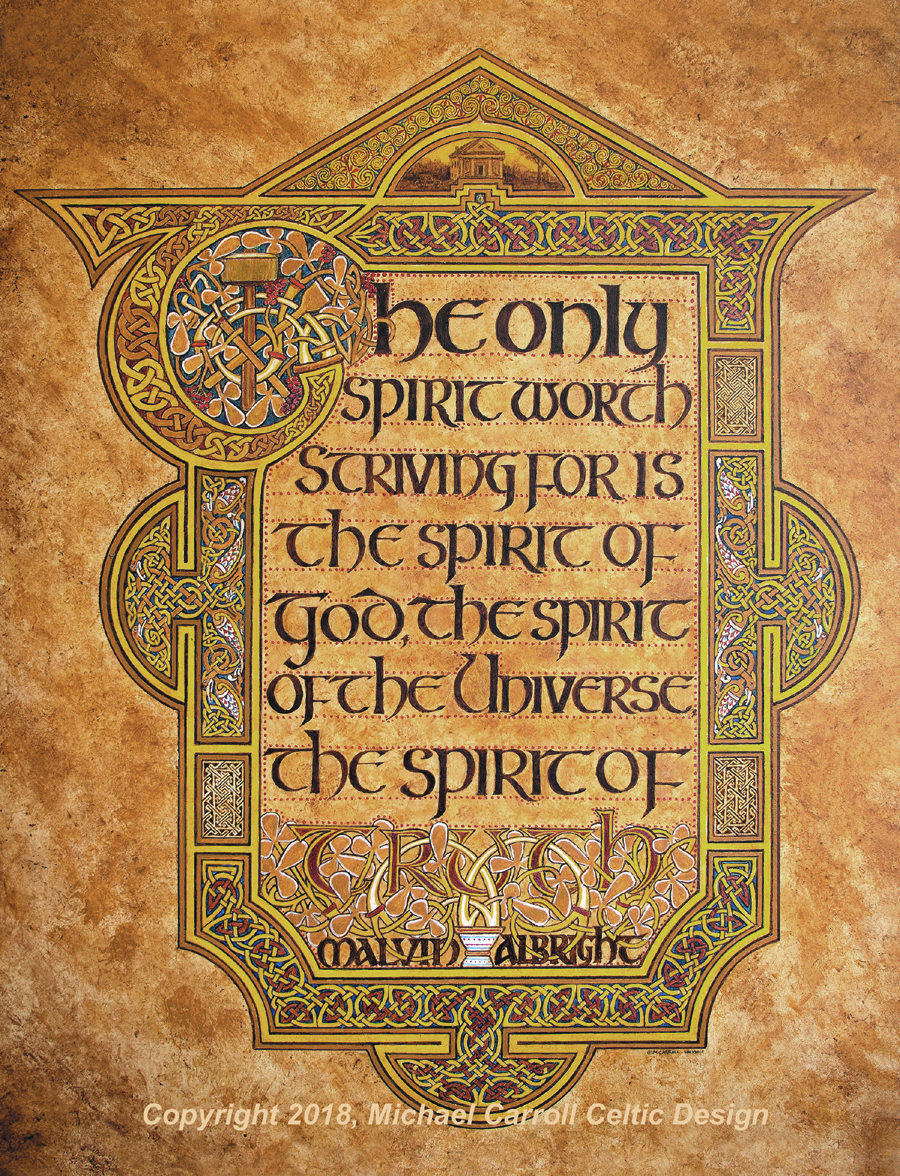 The only
spirit worth
striving for is
the spirit of
God, the spirit
of the Universe
the spirit of
Truth
Malvin Albright
Copyright 2018, Michael Carroll Celtic Design